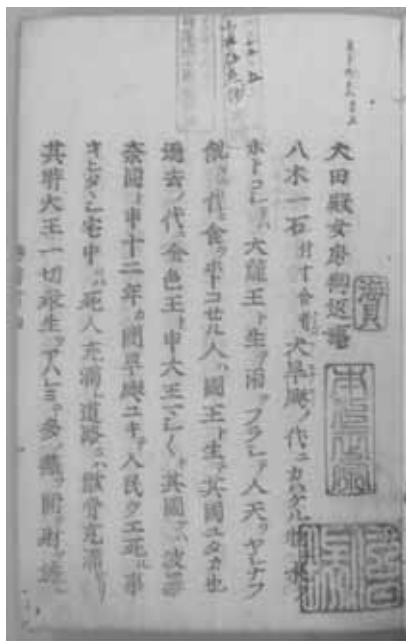 大田殿女房御返事
八木一石付十合者大旱魃ノ代ニカハケル物ニ水ヲ
ホトコシテハ大龍王ト生テ雨ヲフラシテ人天ヲヤシナフ
飢タル代ニ食ヲホトコセル人ハ國王ト生テ其國ユタカ也
過去ノ代ニ金色王ト申大王マシ〱キ其國ヲハ波羅
奈國ト申十二年カ間旱魃ユキテ人民ウエ死ル事
ヲヒタヽシ宅中ニハ死人充滿シ道路ニハ骸骨充滿セリ
其時大王一切衆生ヲアハレミテ多ノ藏ヲ開テ財ヲ施